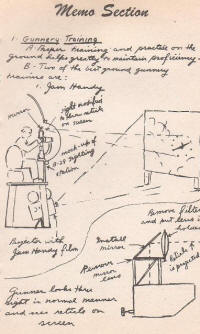 Memo Section
1. Gunnery Training
A. Proper training and practice on the
ground helps greatly to maintain proficiency.
B - Two of the best ground gunnery
trainers are:
1. Jam Handy
mirror
sight modified
to throw reticle
on screen
mock-up of
B-29 sighting
station
Projector with
Jam Handy film
Gunner looks thru
sight in normal manner
and sees reticle on
screen
Install
mirror
Remove
mirror
lens
Remove filter
and put lens in
holder
Reticle
is projected